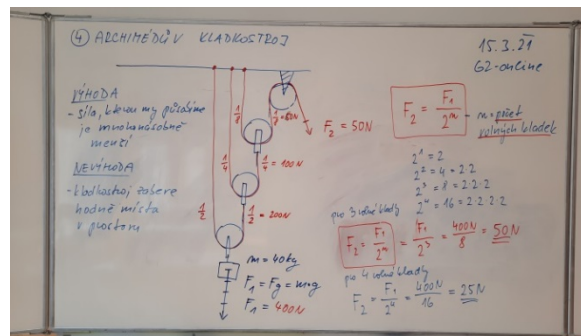 ④ ARCHIMÉDŮV KLADKOSTROJ
15.3.21
G2-online
VÝHODA
- síla, kterou my působíme
je mnohonásobně
menší
NEVÝHODA
- kladkostroj zabere
hodně místa
v prostoru
1/8
1/8 = 50N
F₂ = 50N
1/4
1/4 = 100N
1/2
1/2 = 200N
m = 40kg
F₁ = Fg = m·g
F₁ = 400N
F₂ = F₁/2ⁿ - n = počet
volných kladek
2¹ = 2
2² = 4 = 2·2
2³ = 8 = 2·2·2
2⁴ = 16 = 2·2·2·2
pro 3 volné kladky
F₂ = F₁/2ⁿ = F₁/2³ = 400N/8 = 50N
pro 4 volné kladky
F₂ = F₁/2⁴ = 400N/16 = 25N